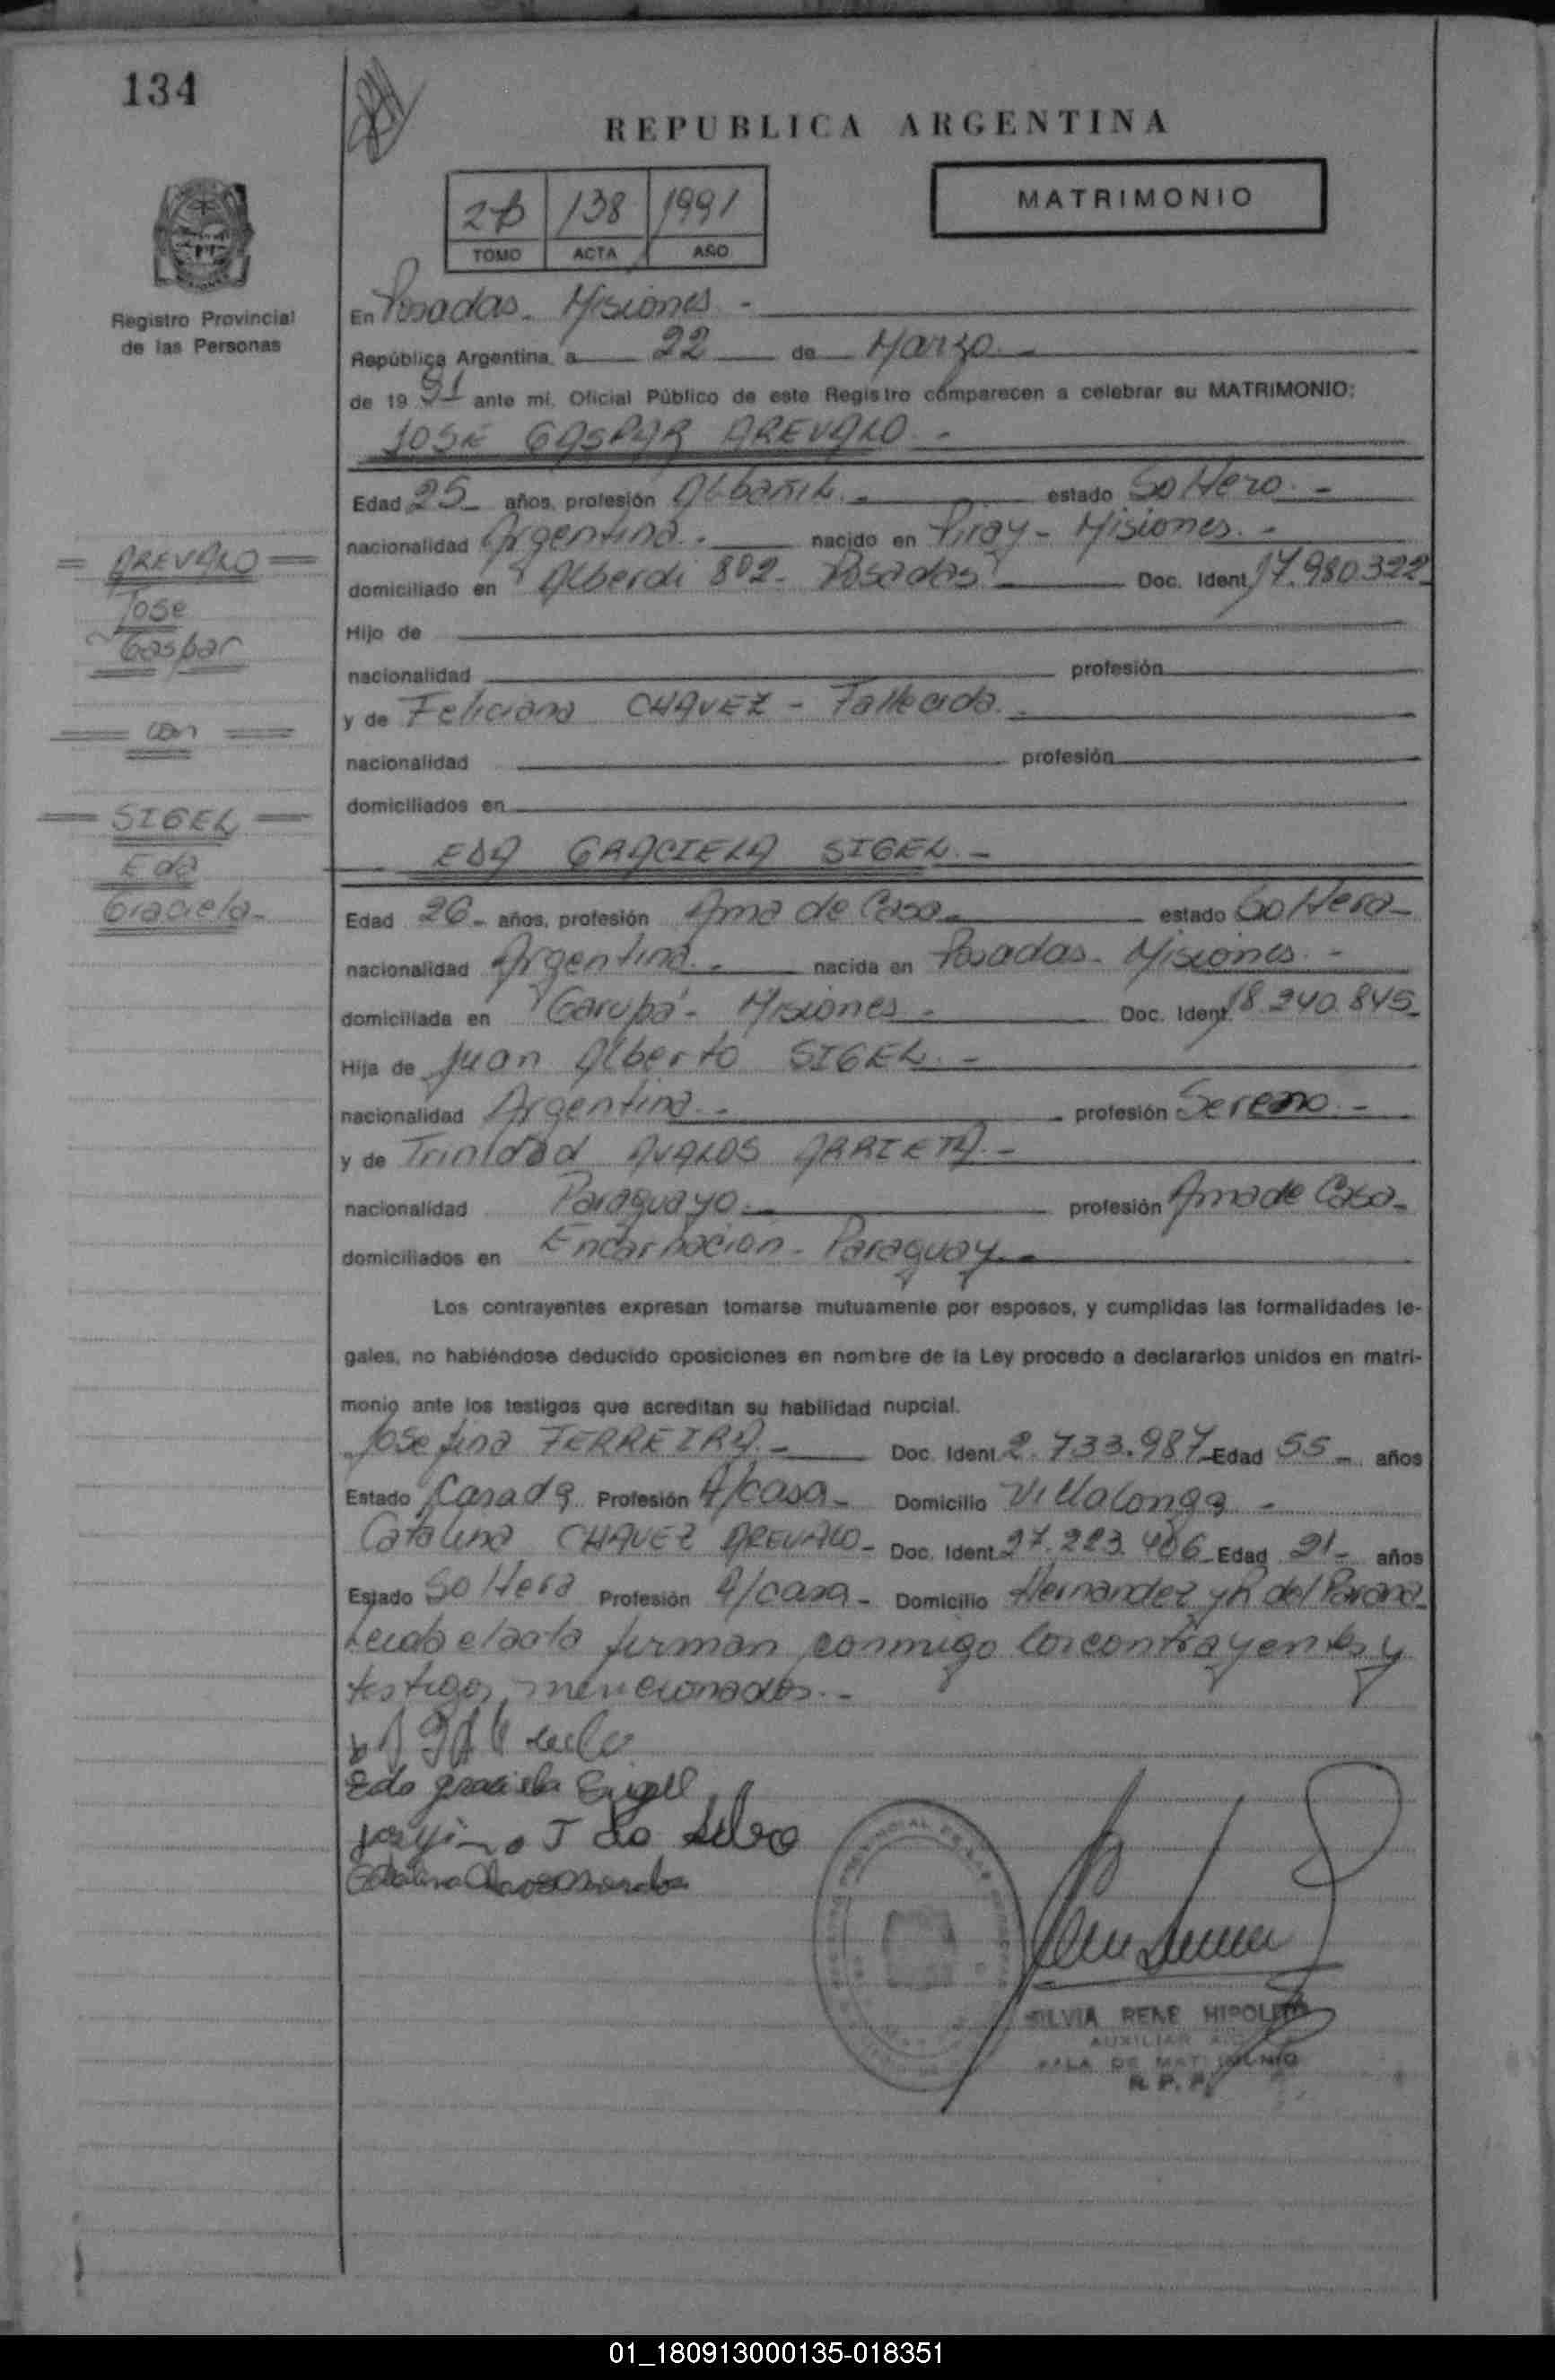 134
REPUBLICA ARGENTINA
2B 138 1991
TOMO ACTA AÑO
MATRIMONIO
Registro Provincial
de las Personas
En Posadas - Misiones -
República Argentina, a 22 de Marzo -
de 19 91 ante mi, Oficial Público de este Registro comparecen a celebrar su MATRIMONIO:
JOSE GASPAR AREVALO -
Edad 25 - años, profesión Albañil - estado Soltero -
nacionalidad Argentina - nacido en Piray - Misiones -
domiciliado en Alberdi 802 - Posadas Doc. Ident. 17.980.322
Hijo de
nacionalidad profesión
y de Feliciana CHAVEZ - Fallecida -
nacionalidad profesión
domiciliados en
= AREVALO =
Jose
Gaspar
= con =
= SIGEL =
Eda
Graciela -
EDA GRACIELA SIGEL -
Edad 26 - años, profesión Ama de Casa - estado Soltera -
nacionalidad Argentina - nacida en Posadas - Misiones -
domiciliada en Garupá - Misiones - Doc. Ident. 18.240.845 -
Hija de Juan Alberto SIGEL -
nacionalidad Argentina - profesión Sereno -
y de Trinidad AVALOS ARRIETA -
nacionalidad Paraguaya - profesión Ama de Casa -
domiciliados en Encarnacion - Paraguay -
Los contrayentes expresan tomarse mutuamente por esposos, y cumplidas las formalidades le-
gales, no habiéndose deducido oposiciones en nombre de la Ley procedo a declararlos unidos en matri-
monio ante los testigos que acreditan su habilidad nupcial.
Josefina FERREIRA - Doc. Ident. 2.733.987 - Edad 55 - años
Estado Casada Profesión A/casa - Domicilio Villalonga -
Catalina CHAVEZ AREVALO - Doc. Ident. 27.223.406 - Edad 21 - años
Estado Soltera Profesión A/casa - Domicilio Hernandez y R. del Parana -
Leida el acta firman conmigo los contrayentes y
testigos mencionados -
Eda graciela Sigell
J Da Silva
Catalina
SILVIA RENE HIPOLITO
AUXILIAR
SALA DE MATRIMONIO
R. P. P.
01_180913000135-018351